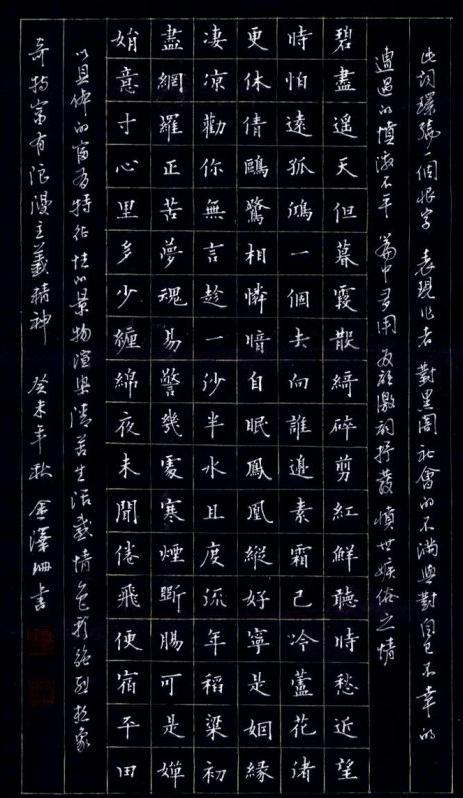 此詞環繞一個恨字 表現作者對黑闇社會的不滿與對自己不幸的
遭遇的憤激不平 篇中多用反語激詞抒發憤世嫉俗之情
碧盡遙天但暮霞散綺碎剪紅鮮聽時愁近望
時怕遠孤鴻一個去向誰邊素霜已冷蘆花渚
更休倩鷗鷺相憐暗自眠鳳凰縱好寧是姻緣
凄涼勸你無言趁一沙半水且度流年稻粱初
盡網羅正苦夢魂易警幾處寒煙斷腸可是嬋
娟意寸心里多少纏綿夜未聞倦飛便宿平田
以具体的富有特征性的景物渲染清苦生活感情色彩強烈想象
奇特富有浪漫主義精神 癸未年秋 金澤珊書